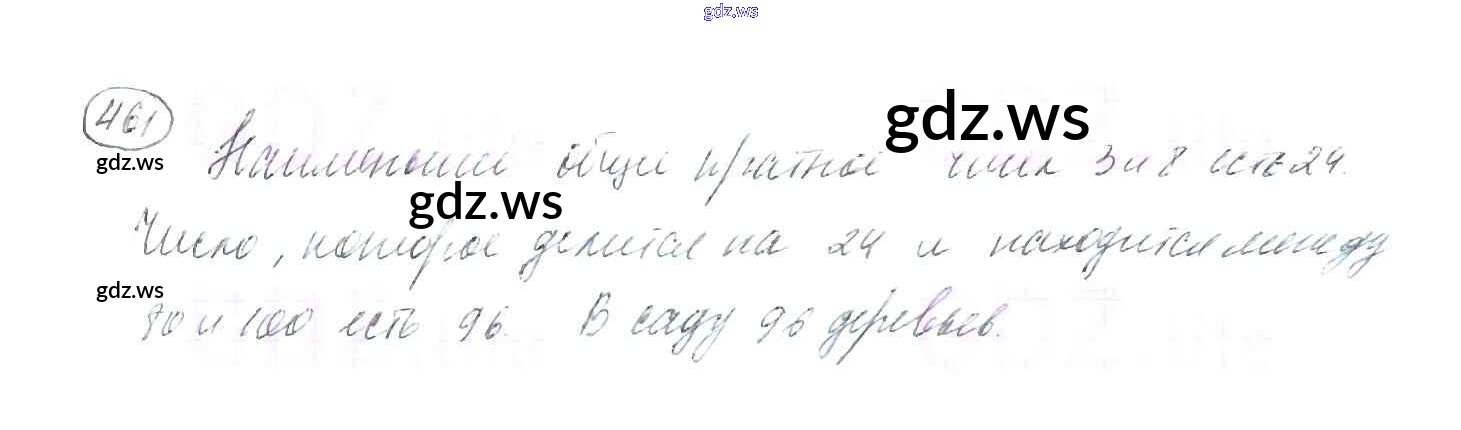 gdz.ws
461
gdz.ws
gdz.ws
Наименьшее общее кратное чисел 3 и 8 есть 24.
gdz.ws
Число, которое делится на 24 и находится между
gdz.ws
80 и 100 есть 96. В саду 96 деревьев.